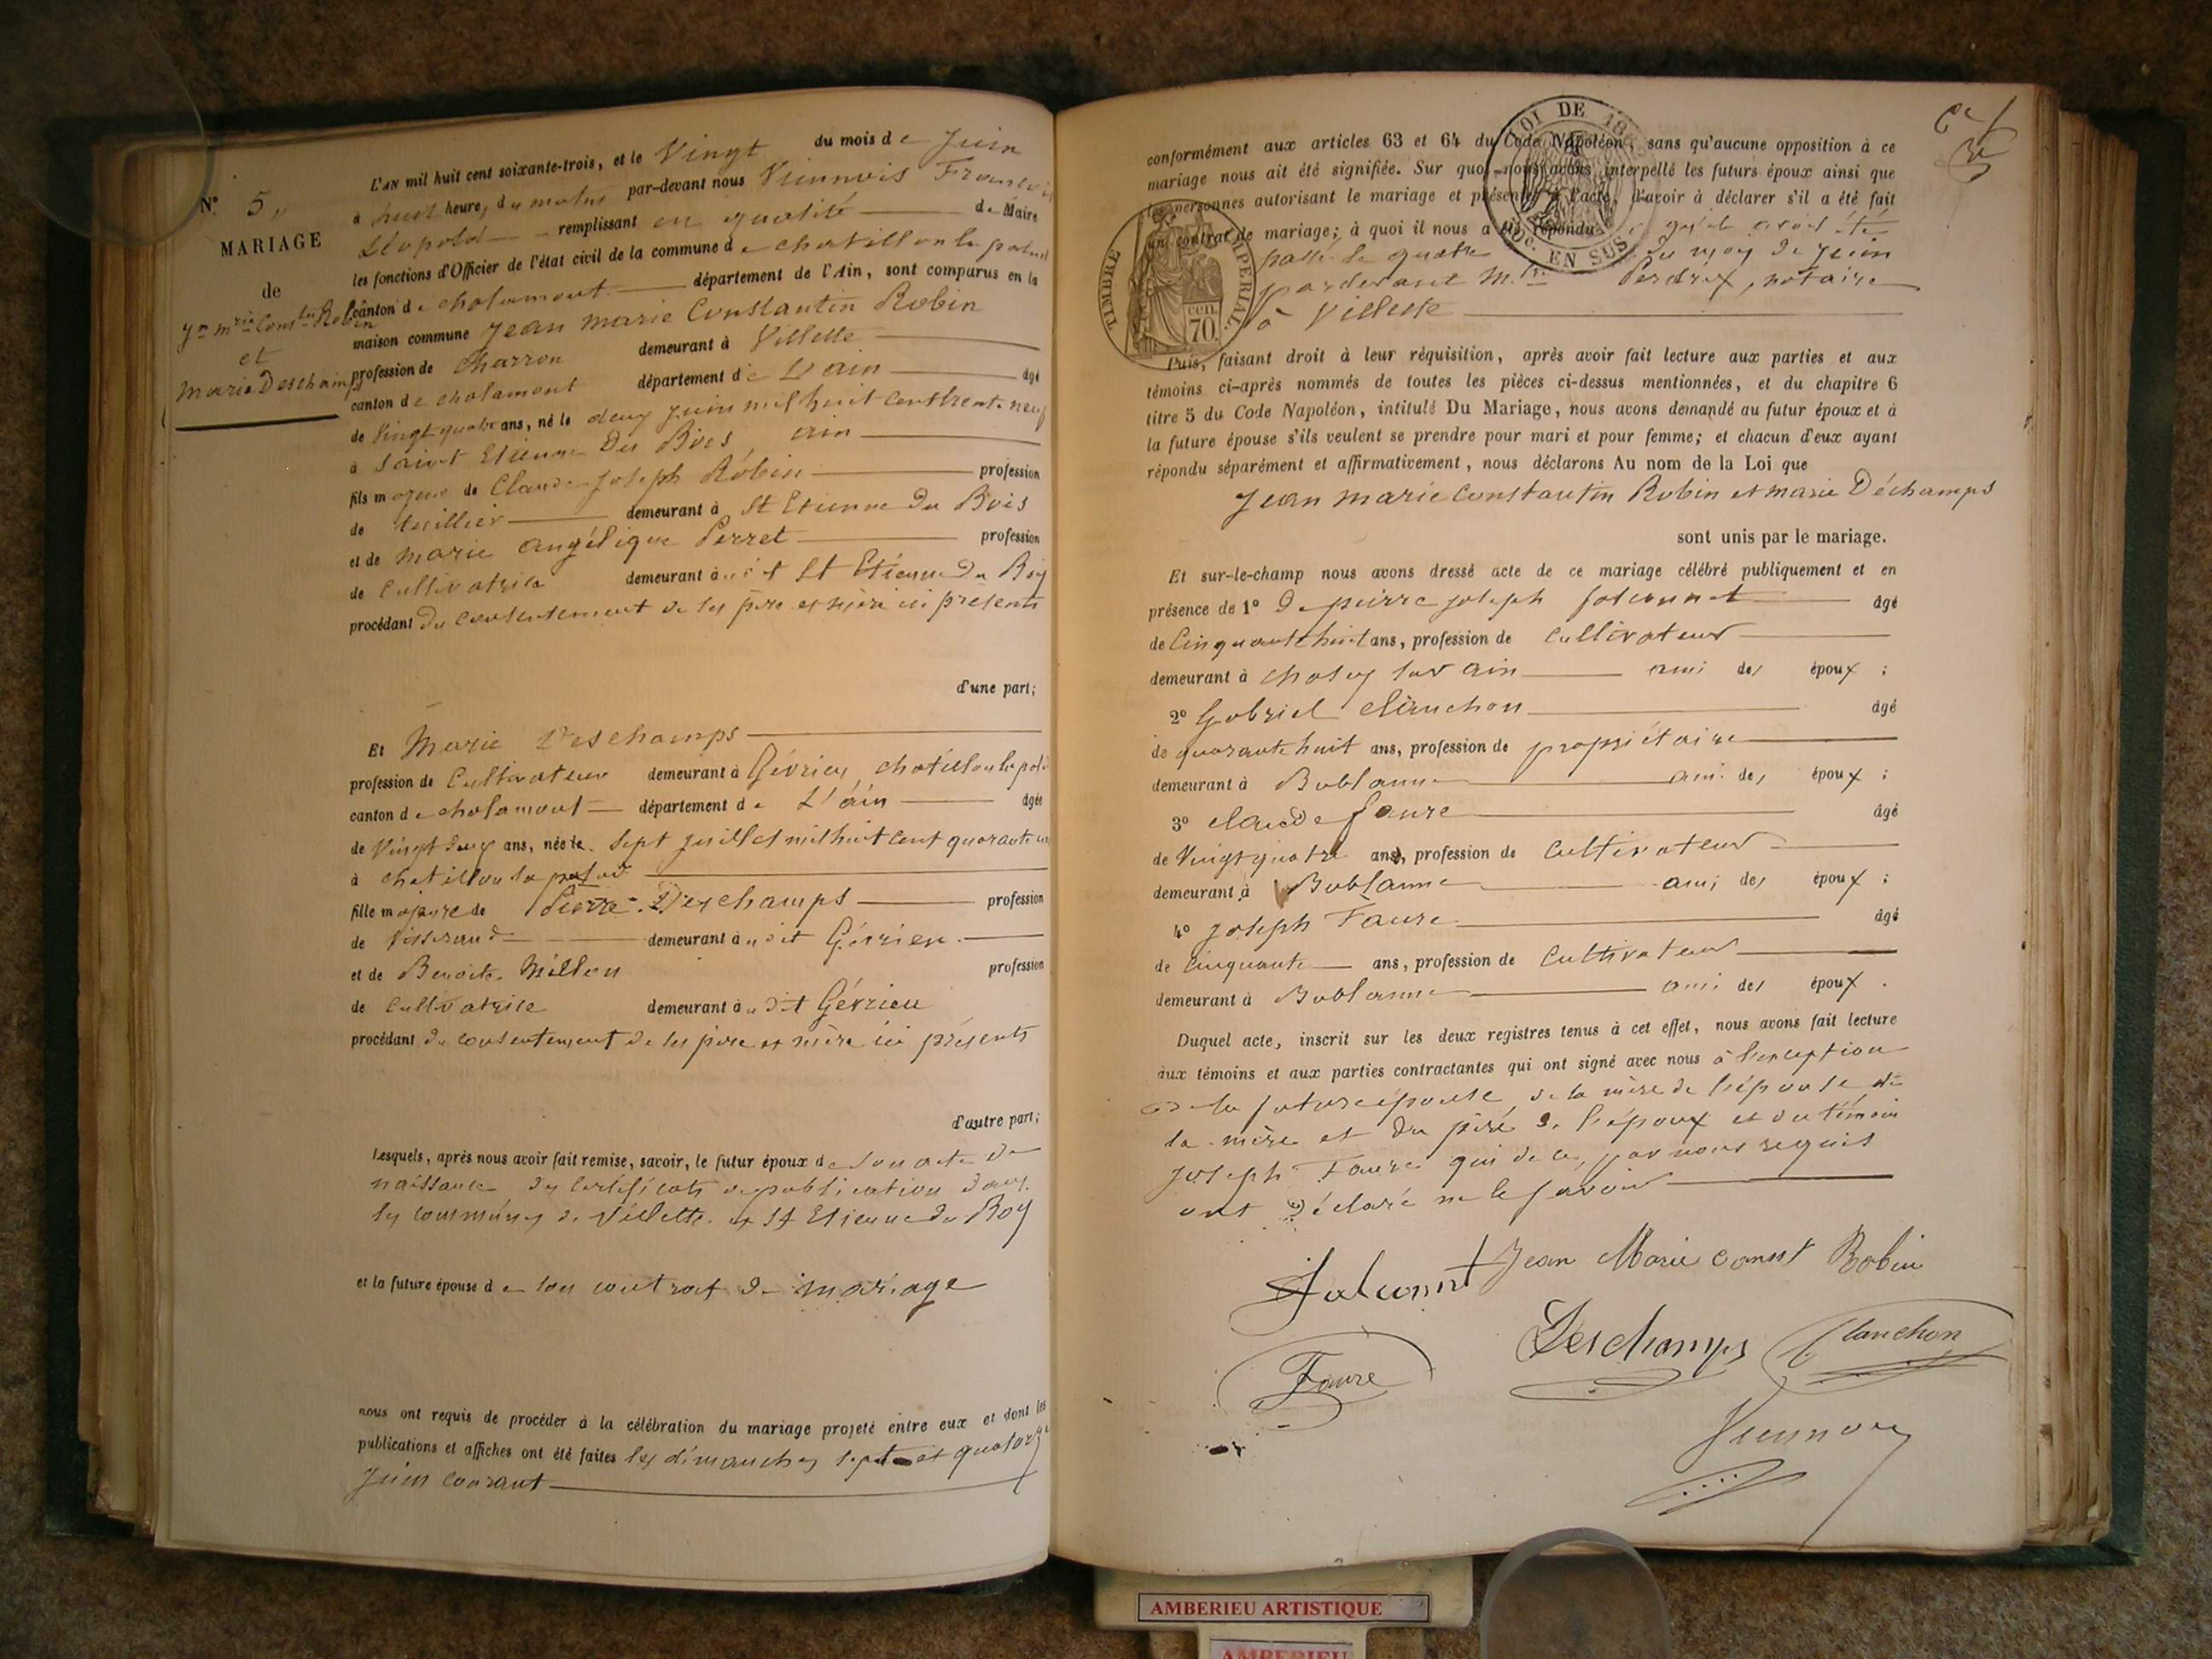 N° 5,
MARIAGE
de
Jn mrie Constin Robin
et
Marie Deschamps
L'AN mil huit cent soixante-trois, et le Vingt du mois de Juin
à huit heures du matin par-devant nous Viennois François
Léopold remplissant en qualité de Maire
les fonctions d'Officier de l'état civil de la commune de chatillon la palud
canton de chalamont département de l'Ain, sont comparus en la
maison commune Jean marie Constantin Robin
profession de Charron demeurant à Villette
canton de chalamont département de L'ain âgé
de Vingt quatre ans, né le deux Juin mil huit cent trente neuf
à Saint Etienne Du Bois ain
fils majeur de Claude Joseph Robin profession
de tuillier demeurant à St Etienne Du Bois
et de marie angélique Perret profession
de Cultivatrice demeurant au dit St Etienne Du Bois
procédant du consentement de ses père et mère ici présents
d'une part;
Et Marie Deschamps
profession de Cultivateur demeurant à Gévrieu, chatillon la palud
canton de chalamont département de L'ain âgée
de Vingt deux ans, née le sept juillet mil huit cent quarante un
à chatillon la palud
fille majeure de Pierre Deschamps profession
de Tisserand demeurant au dit Gévrieu
et de Benoite Millon profession
de Cultivatrice demeurant au dit Gévrieu
procédant du consentement de ses père et mère ici présents
d'autre part;
Lesquels, après nous avoir fait remise, savoir, le futur époux de son acte de
naissance des certificats de publication dans
les communes de Villette et St Etienne du Bois
et la future épouse de son contrat de mariage
nous ont requis de procéder à la célébration du mariage projeté entre eux et dont les
publications et affiches ont été faites les dimanches sept et quatorze
Juin courant
LOI DE
EN SUS
TIMBRE IMPERIAL
cen.
70.
conformément aux articles 63 et 64 du Code Napoléon, sans qu'aucune opposition à ce
mariage nous ait été signifiée. Sur quoi nous avons interpellé les futurs époux ainsi que
les personnes autorisant le mariage et présentes à l'acte, d'avoir à déclarer s'il a été fait
un contrat de mariage; à quoi il nous a été répondu qu'il avait été
passé le quatre du moy de Juin
pardevant M.tre Perdrix, notaire
à Villette
Puis, faisant droit à leur réquisition, après avoir fait lecture aux parties et aux
témoins ci-après nommés de toutes les pièces ci-dessus mentionnées, et du chapitre 6
titre 5 du Code Napoléon, intitulé Du Mariage, nous avons demandé au futur époux et à
la future épouse s'ils veulent se prendre pour mari et pour femme; et chacun d'eux ayant
répondu séparément et affirmativement, nous déclarons Au nom de la Loi que
Jean marie Constantin Robin et marie Déchamps
sont unis par le mariage.
Et sur-le-champ nous avons dressé acte de ce mariage célébré publiquement et en
présence de 1° De pierre joseph falconnet âgé
de Cinquante huit ans, profession de Cultivateur
demeurant à chaley sur ain ami des époux ;
2° Gabriel Clanchon âgé
de quarante huit ans, profession de propriétaire
demeurant à Bublanne ami des époux ;
3° Claude faure âgé
de Vingt quatre ans, profession de Cultivateur
demeurant à Bublanne ami des époux ;
4° Joseph Faure âgé
de Cinquante ans, profession de Cultivateur
demeurant à Bublanne ami des époux .
Duquel acte, inscrit sur les deux registres tenus à cet effet, nous avons fait lecture
aux témoins et aux parties contractantes qui ont signé avec nous à l'exception
de la future épouse, de la mère de l'épouse de
la mère et du père de l'époux et du témoin
Joseph Faure qui de ce, par nous requis
ont Déclaré ne le savoir
Falconnet Jean Marie Const Robin
Faure Deschamps Clanchon
Viennois
AMBERIEU ARTISTIQUE
AMBERIEU